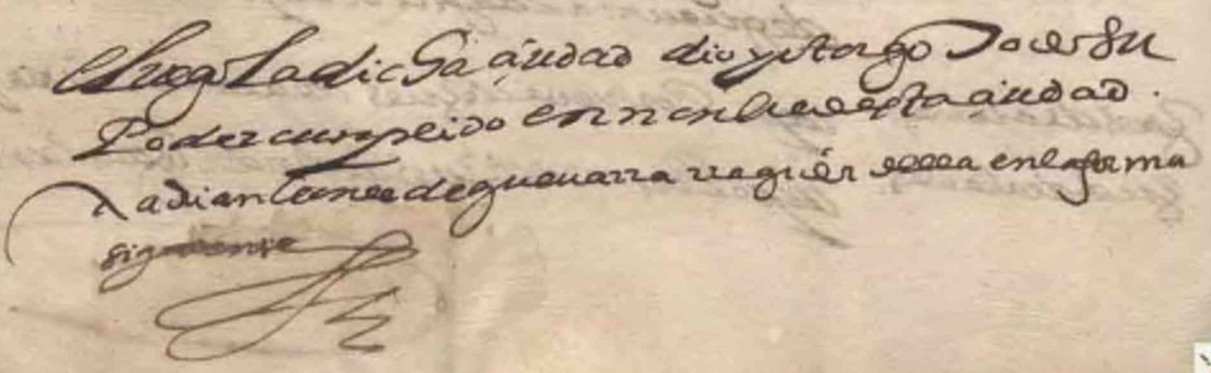 E luego La dicha çiudad dio y otorgo su
Poder cumplido en nonbre desta çiudad.
A de gueuarra della en la forma
siguiente